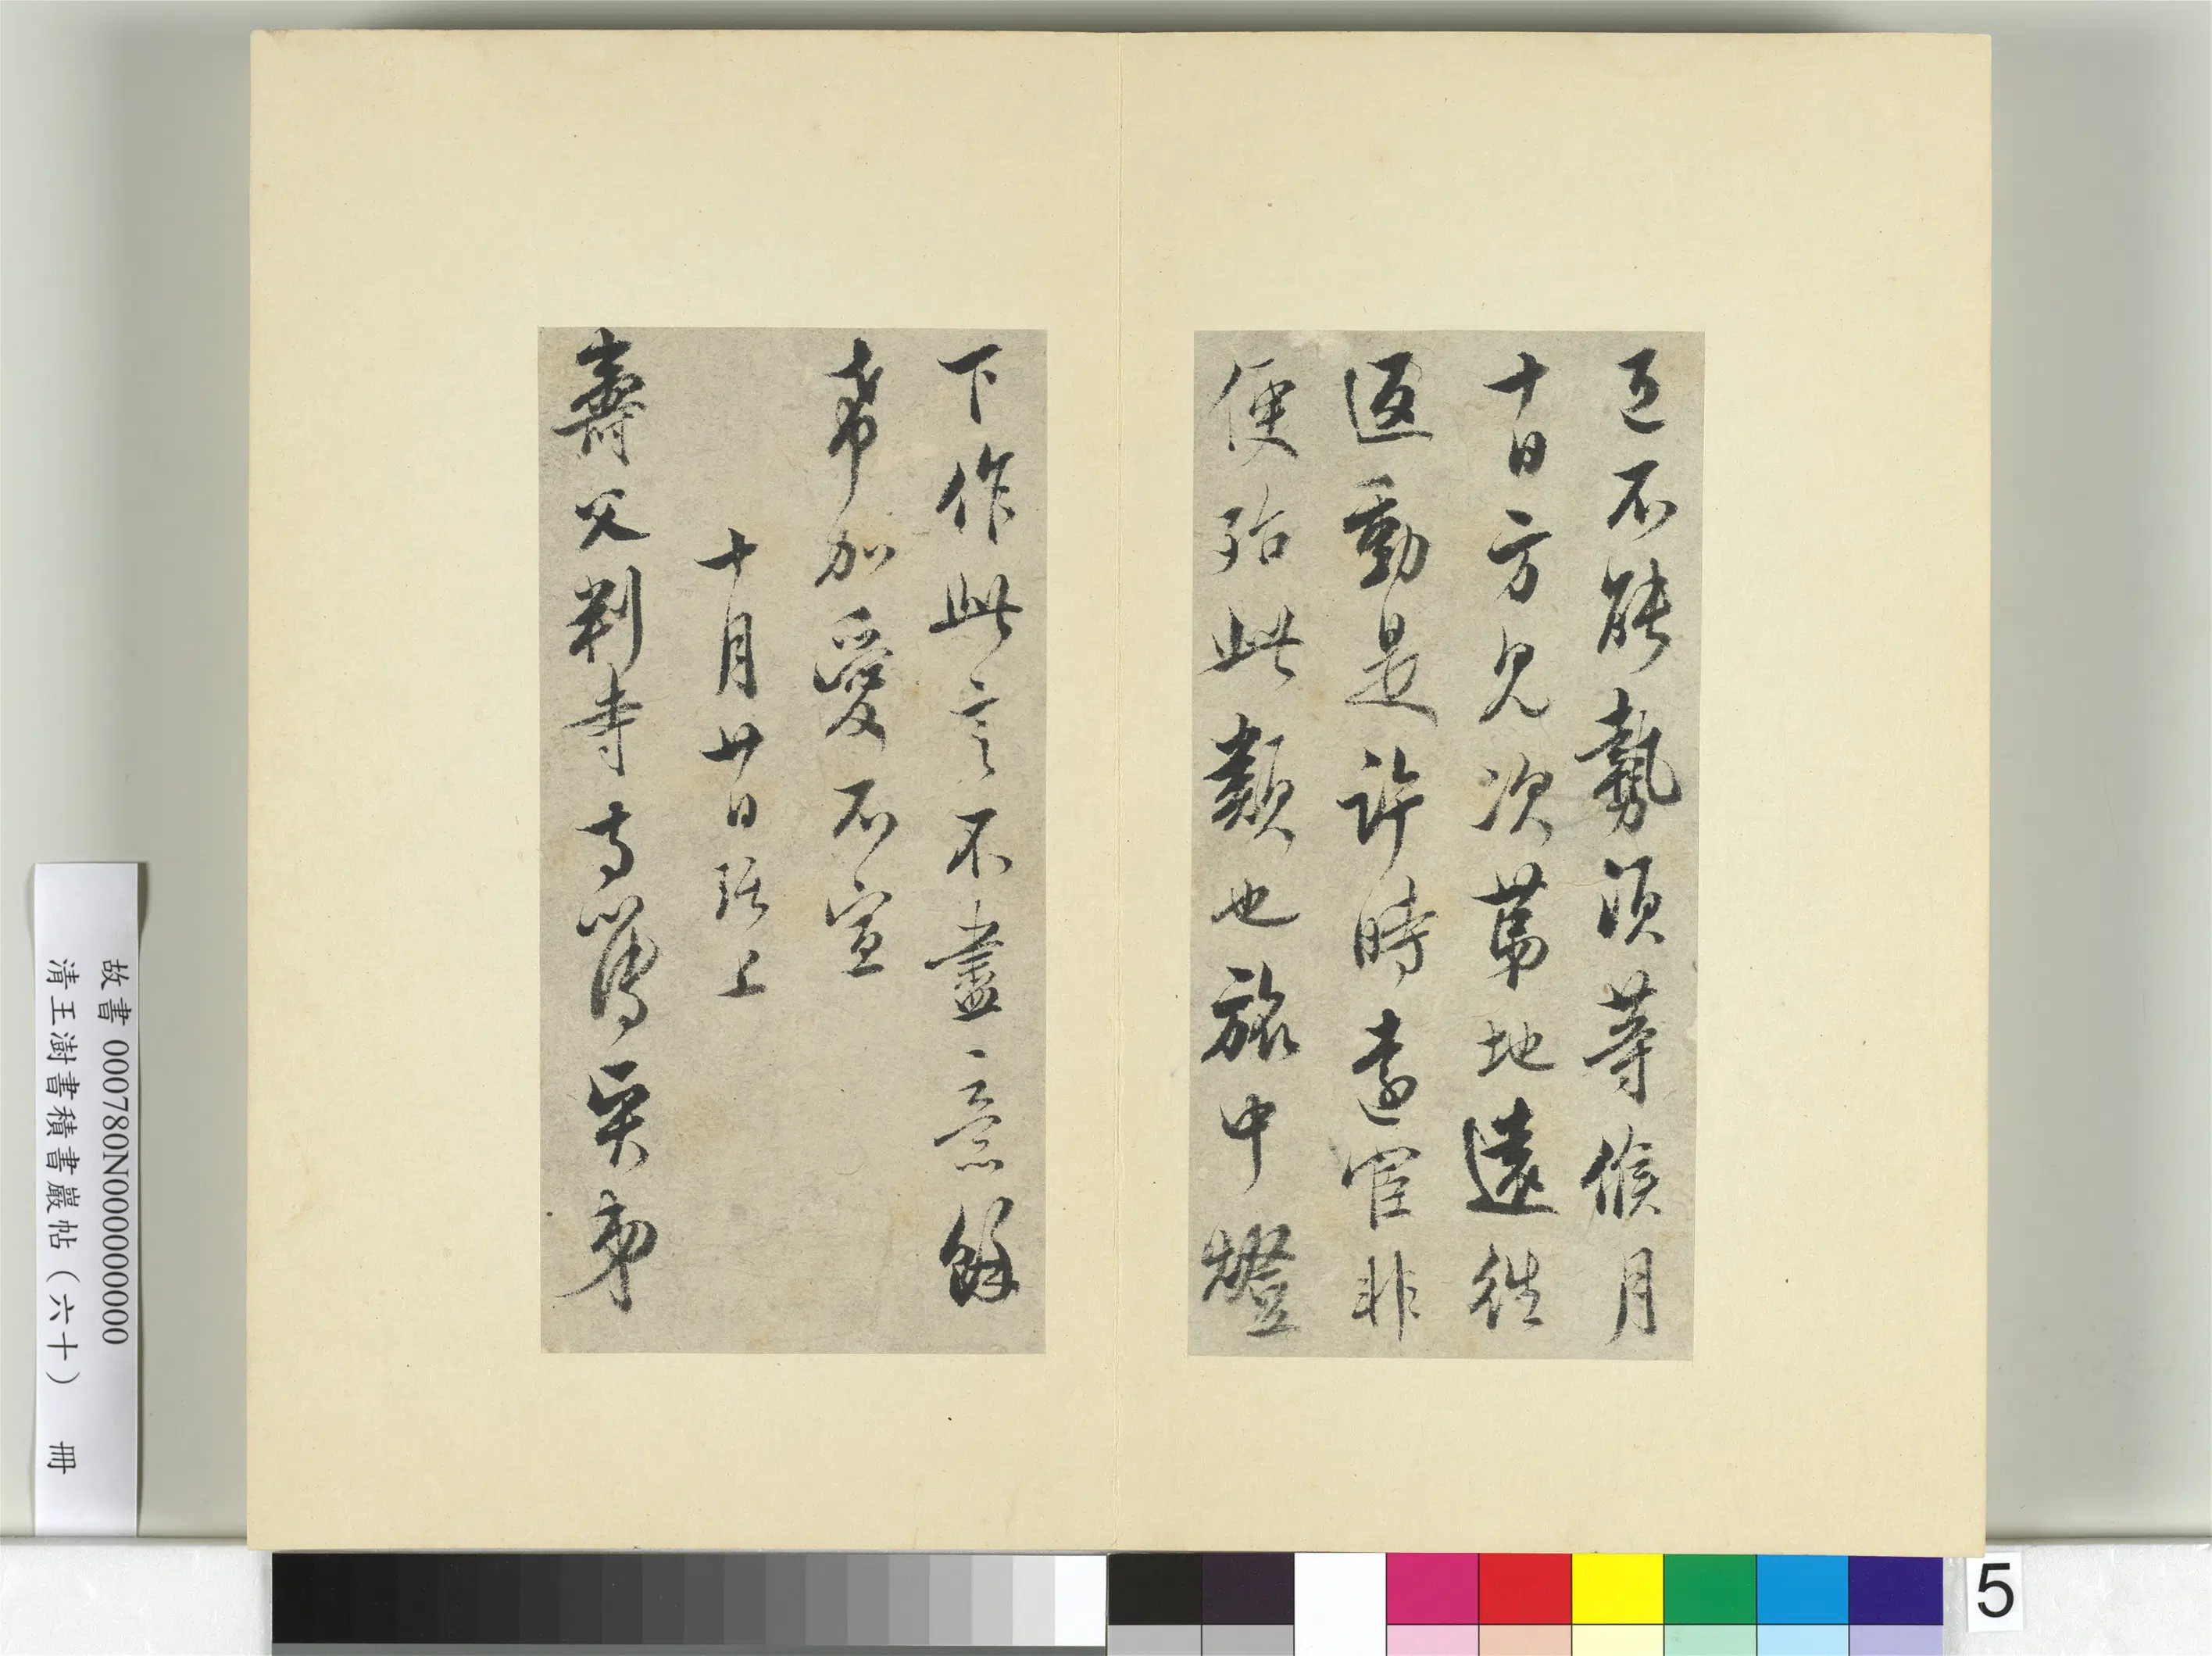 亙不能勢須等候月
十日方見次第地遠往
返動是許時遠官非
便殆此類也旅中燈
下作此言不盡意餘
希加愛不宣
十月廿日拜上
壽父判寺寺簿契弟
故書 000780N000000000
清王澍書積書巖帖（六十） 冊
5